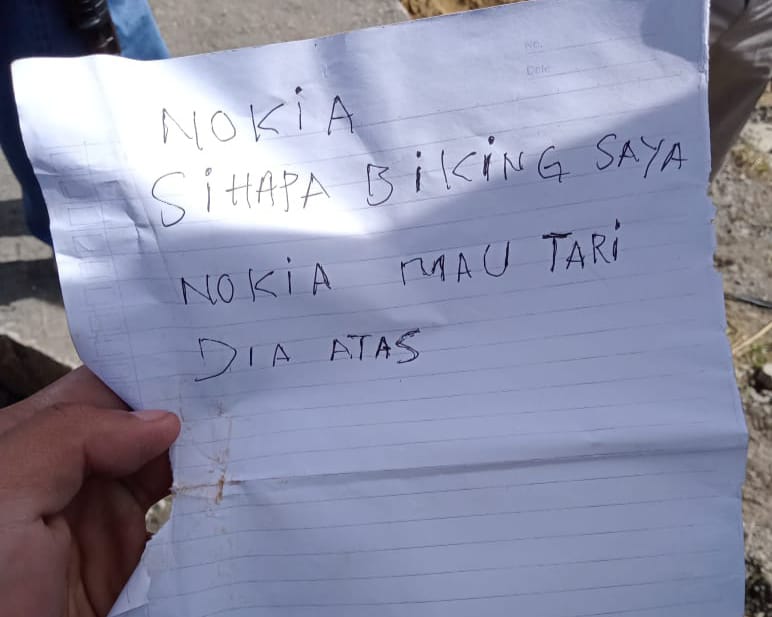 No.
Date
NOKiA
SiHAPA BiKiNG SAYA
NOKiA MAU TARi
DIA ATAS